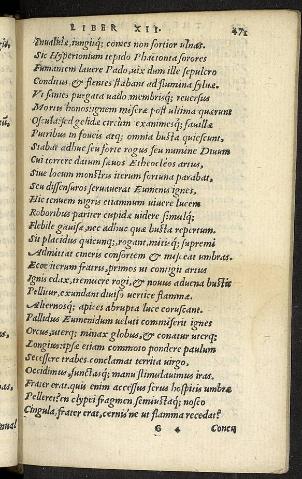 LIBER XII. 471
Inualidæ, iunguntq; comes non fortior ulnas.
Sic Hyperionium tepido Phaëtonta sorores
Fumantem lauere Pado, uix dum ille sepulcro
Conditus, & flentes stabant ad flumina siluæ.
Vt sanies purgata uado membrisq; reuersus
Mortis honos: ignem miseræ post ultima quærunt
Oscula: sed gelidæ circum exanimesq; fauillæ
Putribus in foueis atq; omnia busta quiescunt.
Stabat adhuc seu forte rogus seu numine Diuum
Cui torrere datum sæuos Etheocleos artus,
Siue locum monstris iterum fortuna parabat,
Seu dissensuros seruauerat Eumenis ignes,
Hic tenuem nigris etiamnum uiuere lucem
Roboribus pariter cupidæ uidere simulq;
Flebile gauisæ, nec adhuc quæ busta repertum.
Sit placidus quicunq;, rogant, mitisq; supremi
Admittat cineris consortem & misceat umbras.
Ecce iterum fratris, primos ut contigit artus
Ignis edax, tremuere rogi, & nouus aduena bustis
Pellitur, exundant diuiso uertice flammæ.
Alternosq; apices abrupta luce coruscant.
Pallidus Eumenidum ueluti commiserit ignes
Orcus, uterq; minax globus, & conatur uterq;
Longius: ipsæ etiam commoto pondere paulum
Secessere trabes conclamat territa uirgo.
Occidimus, functasq; manu stimulauimus iras.
Frater erat. quis enim accessus ferus hospitis umbræ
Pelleret? en clypei fragmen semiustaq; nosco
Cingula, frater erat, cernis ne ut flamma recedat?
G 4 Concu